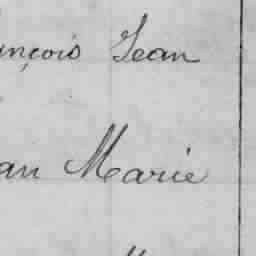 ançois Jean
an Marie